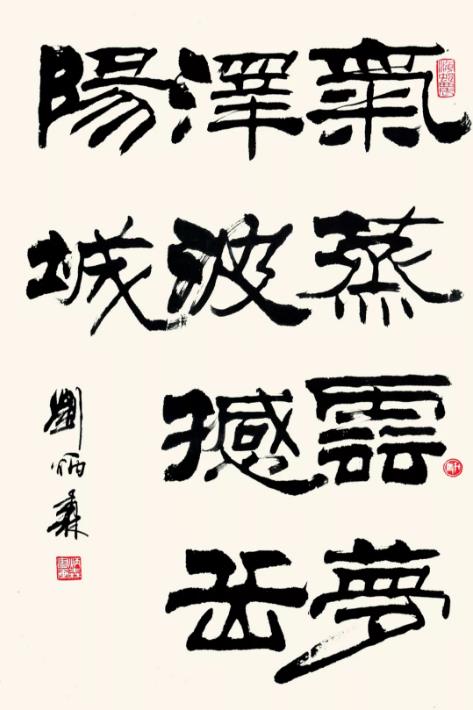 氣蒸雲夢
澤波撼岳
陽城
劉炳森